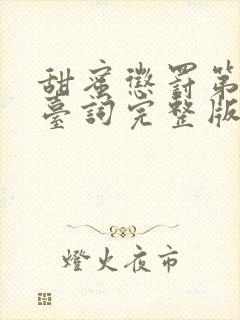 甜蜜懲罰第
臺詞完整版
燈火夜市